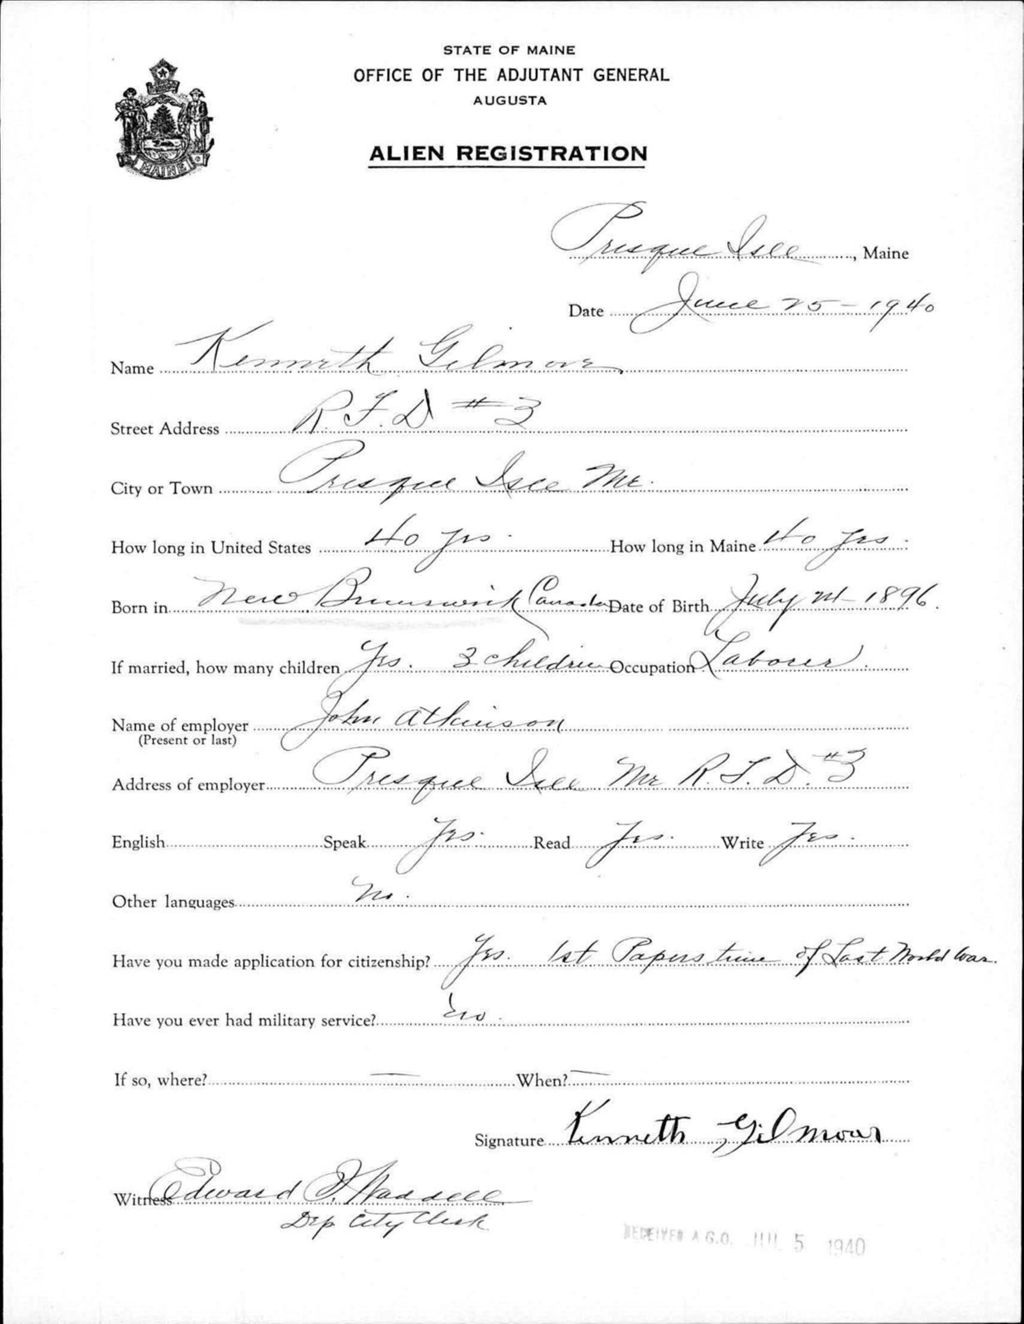 STATE OF MAINE
OFFICE OF THE ADJUTANT GENERAL
AUGUSTA
ALIEN REGISTRATION
MAINE
Presque Isle, Maine
Date June 25 - 1940
Name Kenneth Gilmore
Street Address R.F.D #3
City or Town Presque Isle Me.
How long in United States 40 yrs. How long in Maine 40 yrs.
Born in New Brunswick Canada Date of Birth July 1896.
If married, how many children Yes. 3 children Occupation Laborer.
Name of employer John Atkinson
(Present or last)
Address of employer Presque Isle Me R.F.D. #3
English Speak Yes. Read Yes. Write Yes.
Other languages No.
Have you made application for citizenship? Yes. 1st Papers time of Last World War.
Have you ever had military service? No.
If so, where? — When? —
Signature Kenneth Gilmour
Witness Edward Waddell
Dep City Clerk
RECEIVED A.G.O. JUL 5 1940